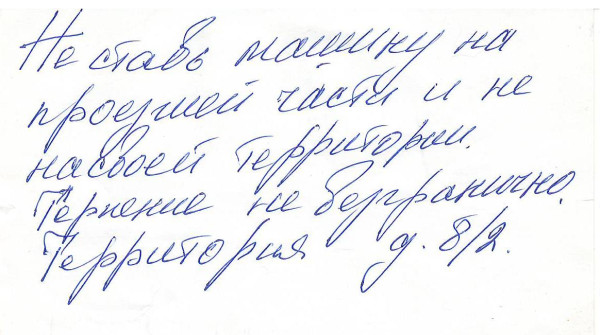 Не ставь машину на
проезшей части и не
насвоей территории.
Терпение не безгранично.
Территория д. 8/2.